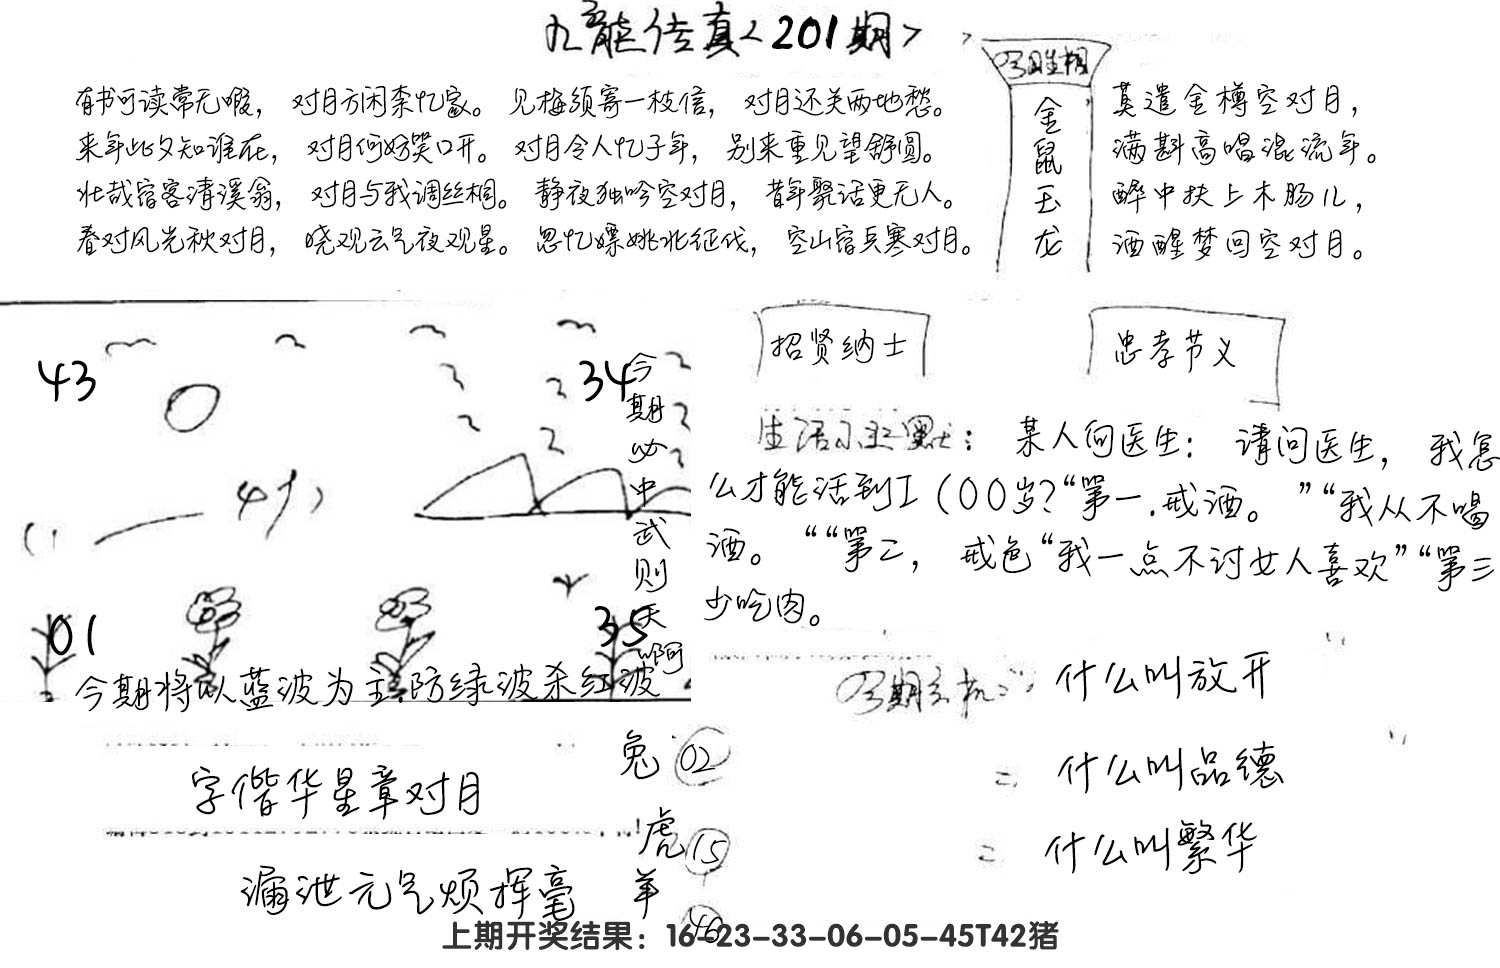 九龙传真<201期>
有书可读常无暇，对月方闲柰忆家。见梅须寄一枝信，对月还关两地愁。
来年此夕知谁在，对月何妨笑口开。对月令人忆子年，别来重见望舒圆。
壮哉宿客清溪翁，对月与我调丝桐。静夜独吟空对月，昔年聚话更无人。
春对风光秋对月，晓观云气夜观星。思忆嫖姚北征伐，空山宿兵寒对月。
金鼠玉龙
莫遣金樽空对月，
满斟高唱混流年。
醉中扶上木肠儿，
酒醒梦回空对月。
43
34
01
35
今期必中武则天啊
今期将以蓝波为主防绿波杀红波
招贤纳士
忠孝节义
某人问医生：请问医生，我怎
么才能活到工(00岁?“第一.戒酒。”“我从不喝
酒。““第二，戒色“我一点不讨女人喜欢”“第三
少吃肉。
什么叫放开
= 什么叫品德
= 什么叫繁华
字偕华星章对月
漏泄元气烦挥毫
兔 02
虎 15
羊 46
上期开奖结果：16-23-33-06-05-45T42猪